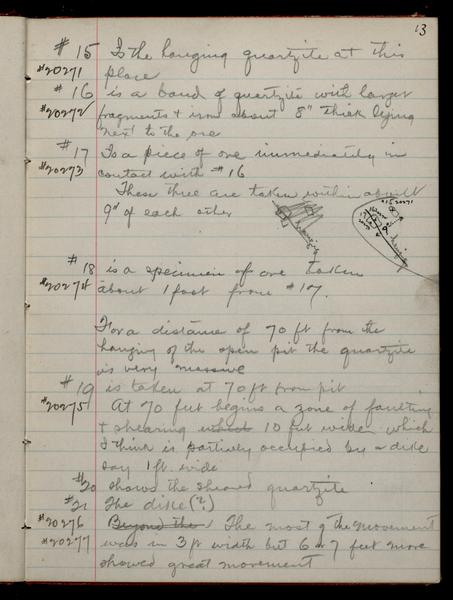 13
#15 Is the hanging quartzite at this
#20271 place
#16 is a band of quartzite with larger
#20272 fragments + iron about 8" thick lying
next to the ore
#17 Is a piece of ore immediately in
#20273 contact with #16
These three are taken within about
9" of each other
#18 is a specimen of ore taken
#20274 about 1 foot from #17.
For a distance of 70 ft from the
hanging of the open pit the quartzite
is very massive
#19 is taken at 70 ft from pit
#20275 At 70 feet begins a zone of faulting
+ shearing which 10 feet wide which
I think is partively occupied by a dike
say 1 ft. wide
#20 shows the sheared quartzite
#21 The dike (?)
#20276 Beyond the The most of the movement
#20277 was in 3 ft width but 6 or 7 feet more
showed great movement